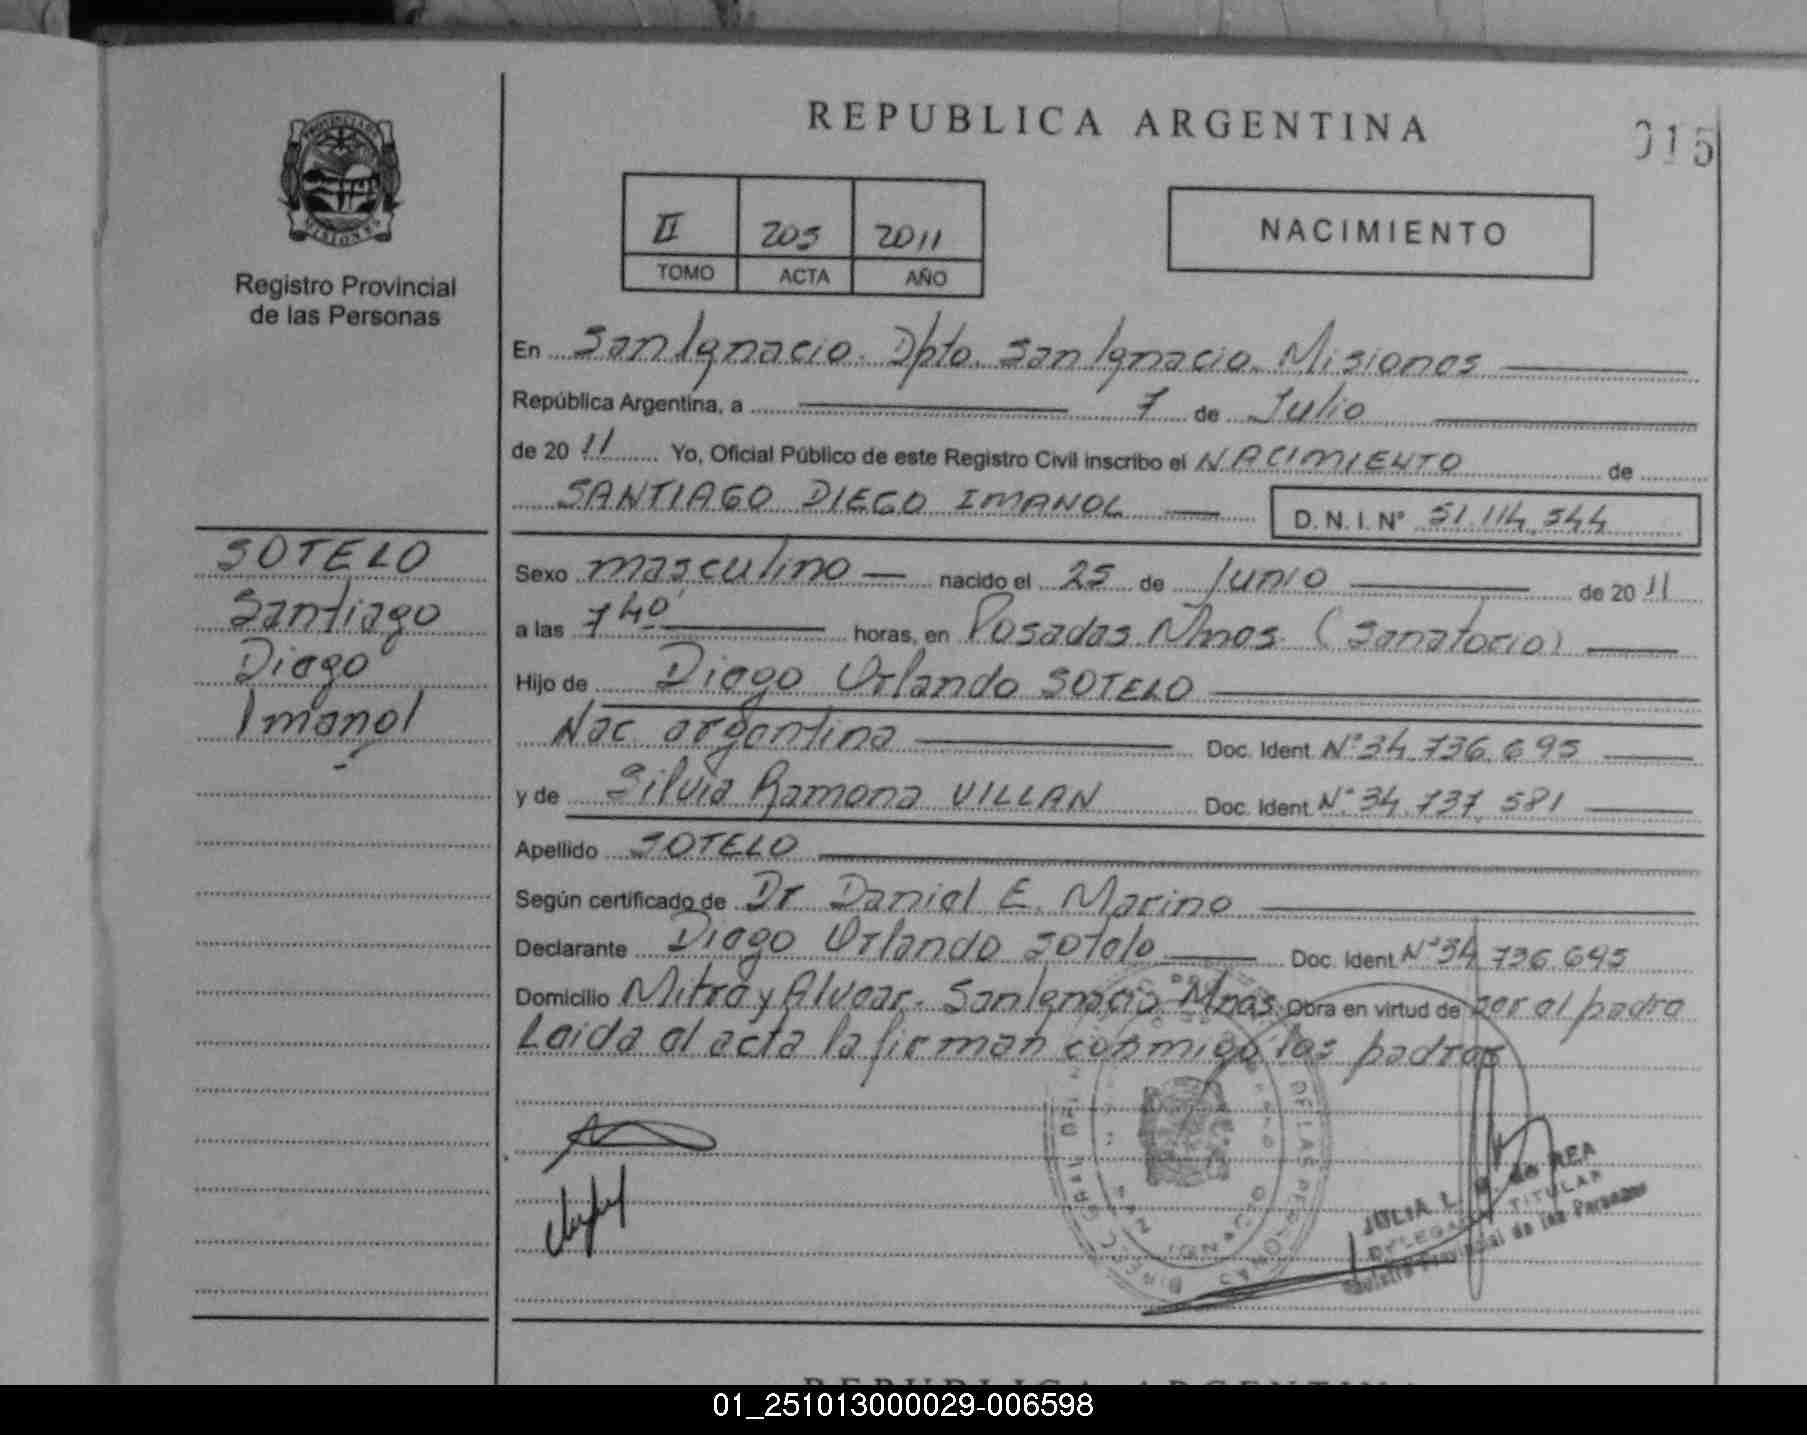 REPUBLICA ARGENTINA
015
PROVINCIA DE
MISIONES
Registro Provincial
de las Personas
II 205 2011
TOMO ACTA AÑO
NACIMIENTO
En San Ignacio. Dpto. San Ignacio. Misiones
República Argentina, a 7 de Julio
de 20 11 Yo, Oficial Público de este Registro Civil inscribo el NACIMIENTO de
SANTIAGO DIEGO IMANOL D. N. I. Nº 51.114.544
SOTELO
Santiago
Diego
Imanol
Sexo masculino nacido el 25 de Junio de 20 11
a las 7 40 horas, en Posadas Mnes. (Sanatorio)
Hijo de Diego Orlando SOTELO
Nac. argentina Doc. Ident. Nº 34.736.695
y de Silvia Ramona VILLAN Doc. Ident. Nº 34.737.581
Apellido SOTELO
Según certificado de Dr Daniel E. Marino
Declarante Diego Orlando Sotelo Doc. Ident. Nº 34 736.695
Domicilio Mitre y Alvear. San Ignacio Mnes. Obra en virtud de ser el padre
Leida el acta la firman conmigo los padres
JULIA L. de REA
DELEGADA TITULAR
Registro Provincial de las Personas
REPUBLICA ARGENTINA
01_251013000029-006598